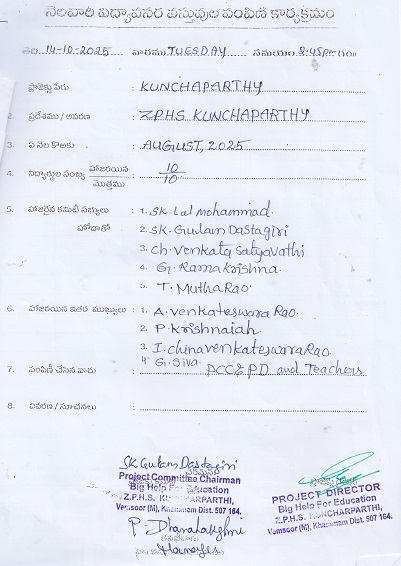 నెలవారీ విద్యావసర వస్తువుల పంపిణీ కార్యక్రమం
తేది 14-10-2025 వారము TUESDAY సమయం 2:45PM గం॥
ప్రాజెక్టు పేరు : KUNCHAPARTHY
2. ప్రదేశము / ఆవరణ : Z.P.H.S. KUNCHAPARTHY
3. ఏ నెల కొఱకు : AUGUST, 2025
4. విద్యార్థుల సంఖ్య హాజరయిన / మొత్తము : 10/10
5. హాజరైన కమిటీ సభ్యులు : 1. SK. Lal mohammad.
హోదాతో 2. SK. Gulam Dastagiri
3. Ch. Venkata Satyavathi
4. G. Ramakrishna.
5. T. Mutha Rao.
6. హాజరయిన ఇతర ముఖ్యులు : 1. A. Venkateswara Rao.
2. P. Krishnaiah.
3. I. China Venkateswara Rao.
4. G. Siva.
7. పంపిణీ చేసిన వారు : PCC & PD and Teachers
8. వివరణ / సూచనలు :
SK Gulam Dastagiri
Project Committee Chairman
Big Help For Education
Z.P.H.S. KUNCHARPARTHI,
Vemsoor (M), Khammam Dist. 507 164.
P. Dhanalakshmi
PROJECT DIRECTOR
Big Help For Education
Z.P.H.S. KUNCHARPARTHI,
Vemsoor (M), Khammam Dist. 507 164.